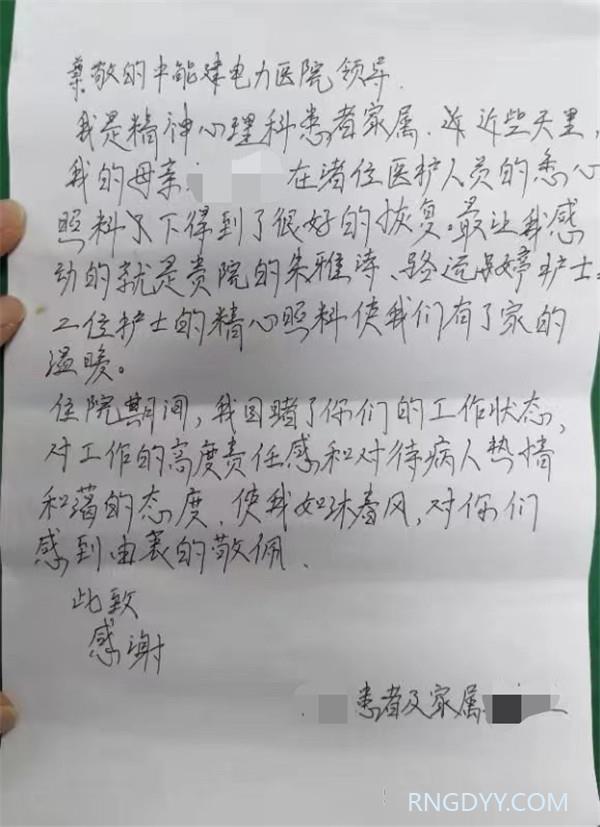 尊敬的中能建电力医院领导.
我是精神心理科患者家属.近近些天里,
我的母亲 在诸位医护人员的悉心
照料之下得到了很好的恢复。最让我感
动的就是贵院的朱雅涛、路运婷护士.
二位护士的精心照料使我们有了家的
温暖。
住院期间,我目睹了你们的工作状态,
对工作的高度责任感和对待病人热情
和蔼的态度.使我如沐春风,对你们
感到由衷的敬佩.
此致
感谢
患者及家属
RNGDYY.COM